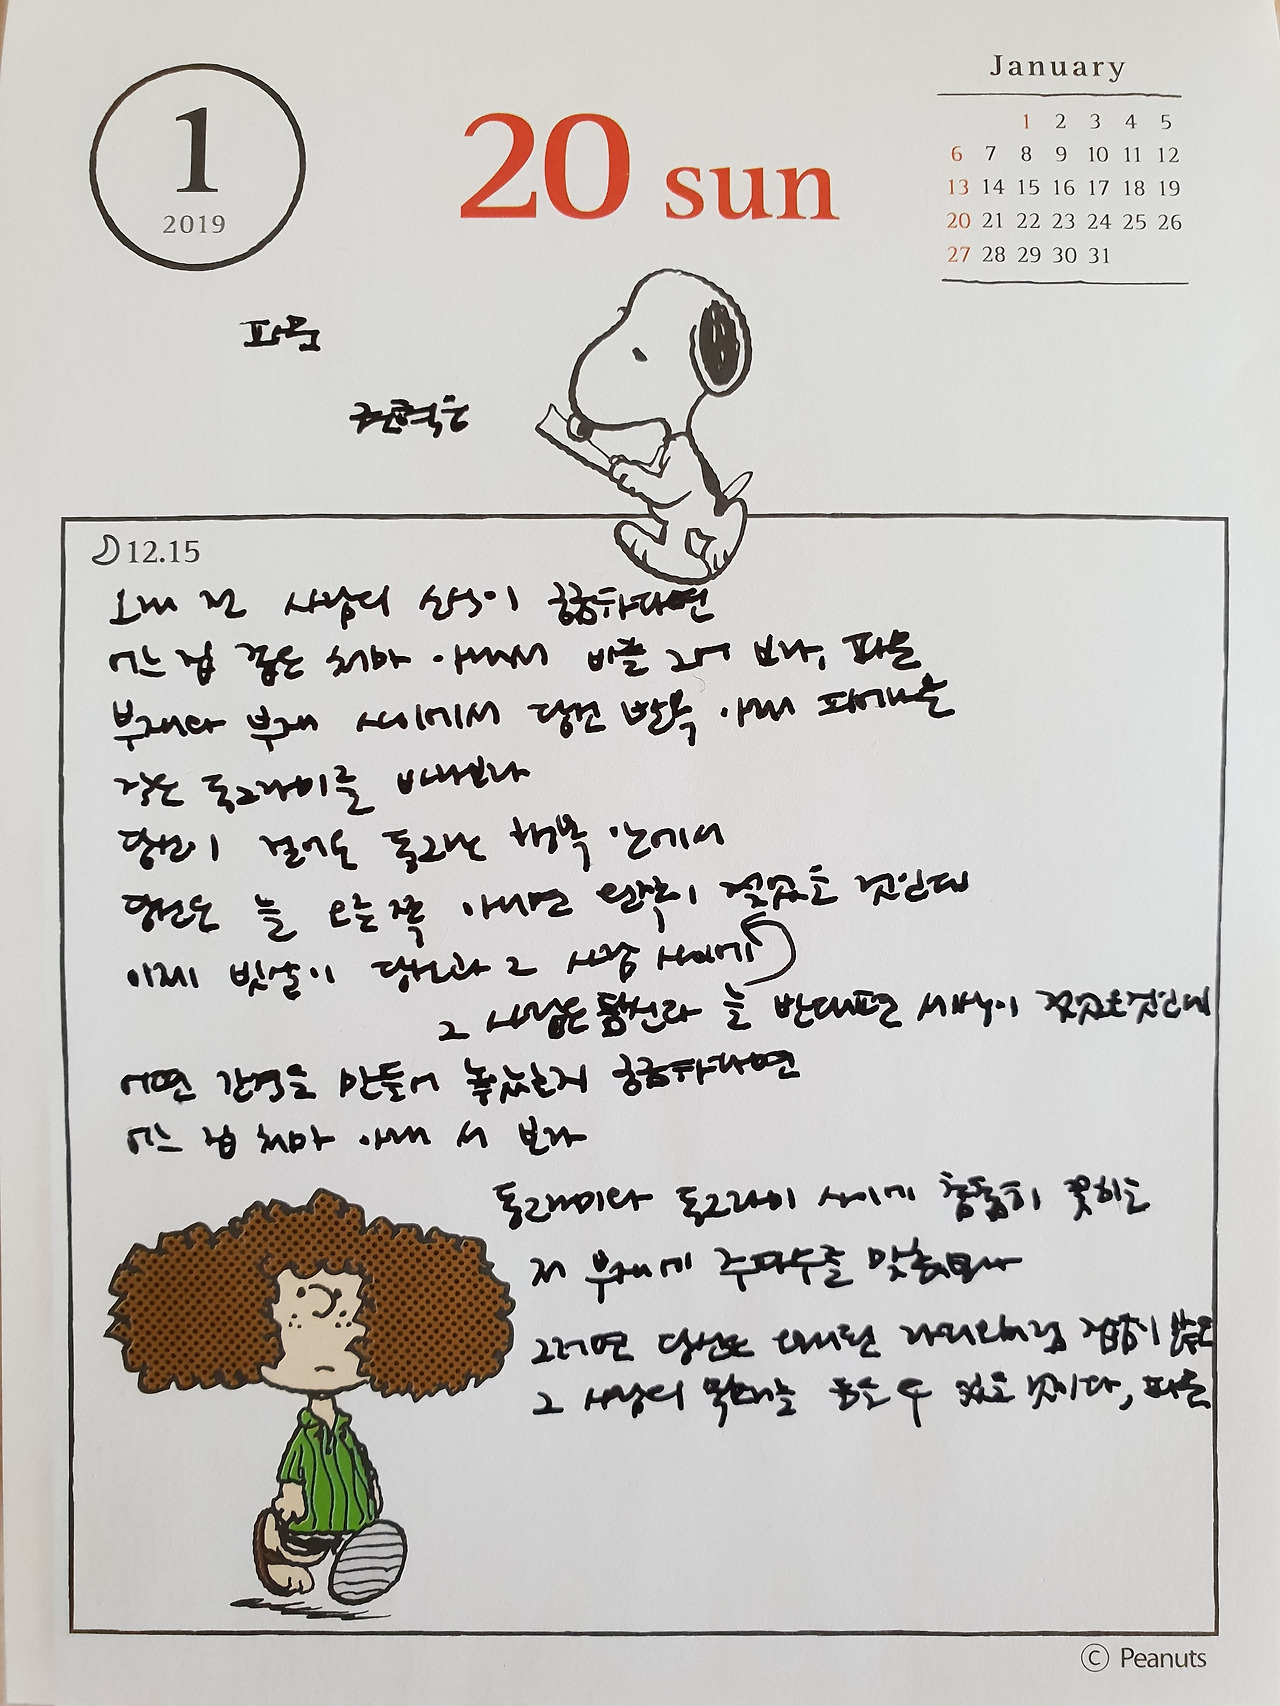 1
2019
20 sun
January
1 2 3 4 5
6 7 8 9 10 11 12
13 14 15 16 17 18 19
20 21 22 23 24 25 26
27 28 29 30 31
파문
권혁웅
12.15
오래 전 사람의 소식이 궁금하다면
어느 집 좁은 처마 아래서 비를 그어 보라, 파문
부재와 부재 사이에서 당신 발목 아래 피어나는
작은 동그라미를 바라보라
당신이 걸어온 동그란 행복 안에서
당신은 늘 오른쪽 아니면 왼쪽이 젖었을 것인데
이제 빗살이 당신과 그 사람 사이에
그 사람은 당신과 늘 반대편 세상이 젖었을 것인데
어떤 간격을 만들어 놓았는지 궁금하다면
어느 집 처마 아래 서 보라
동그라미와 동그라미 사이에 촘촘히 꽂히는
저 부재에 주파수를 맞춰보라
그러면 당신은 오래된 라디오처럼 잡음이 많은
그 사람의 목소리를 들을 수 있을 것이다, 파문
© Peanuts